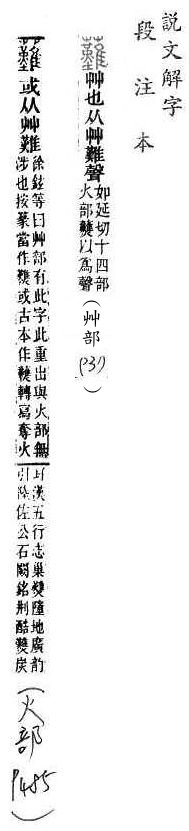 說文解字
段注本
艸也从艸難聲 如延切十四部
火部䕼以爲聲 (艸部 P31)
或从艸難 徐鉉等曰艸部有此字此重出與火部無
涉也按篆當作 或古本作 轉寫奪火
漢五行志巢 墮地廣韵
引陸佐公石闕銘刑酷 炭
(火部 P485)